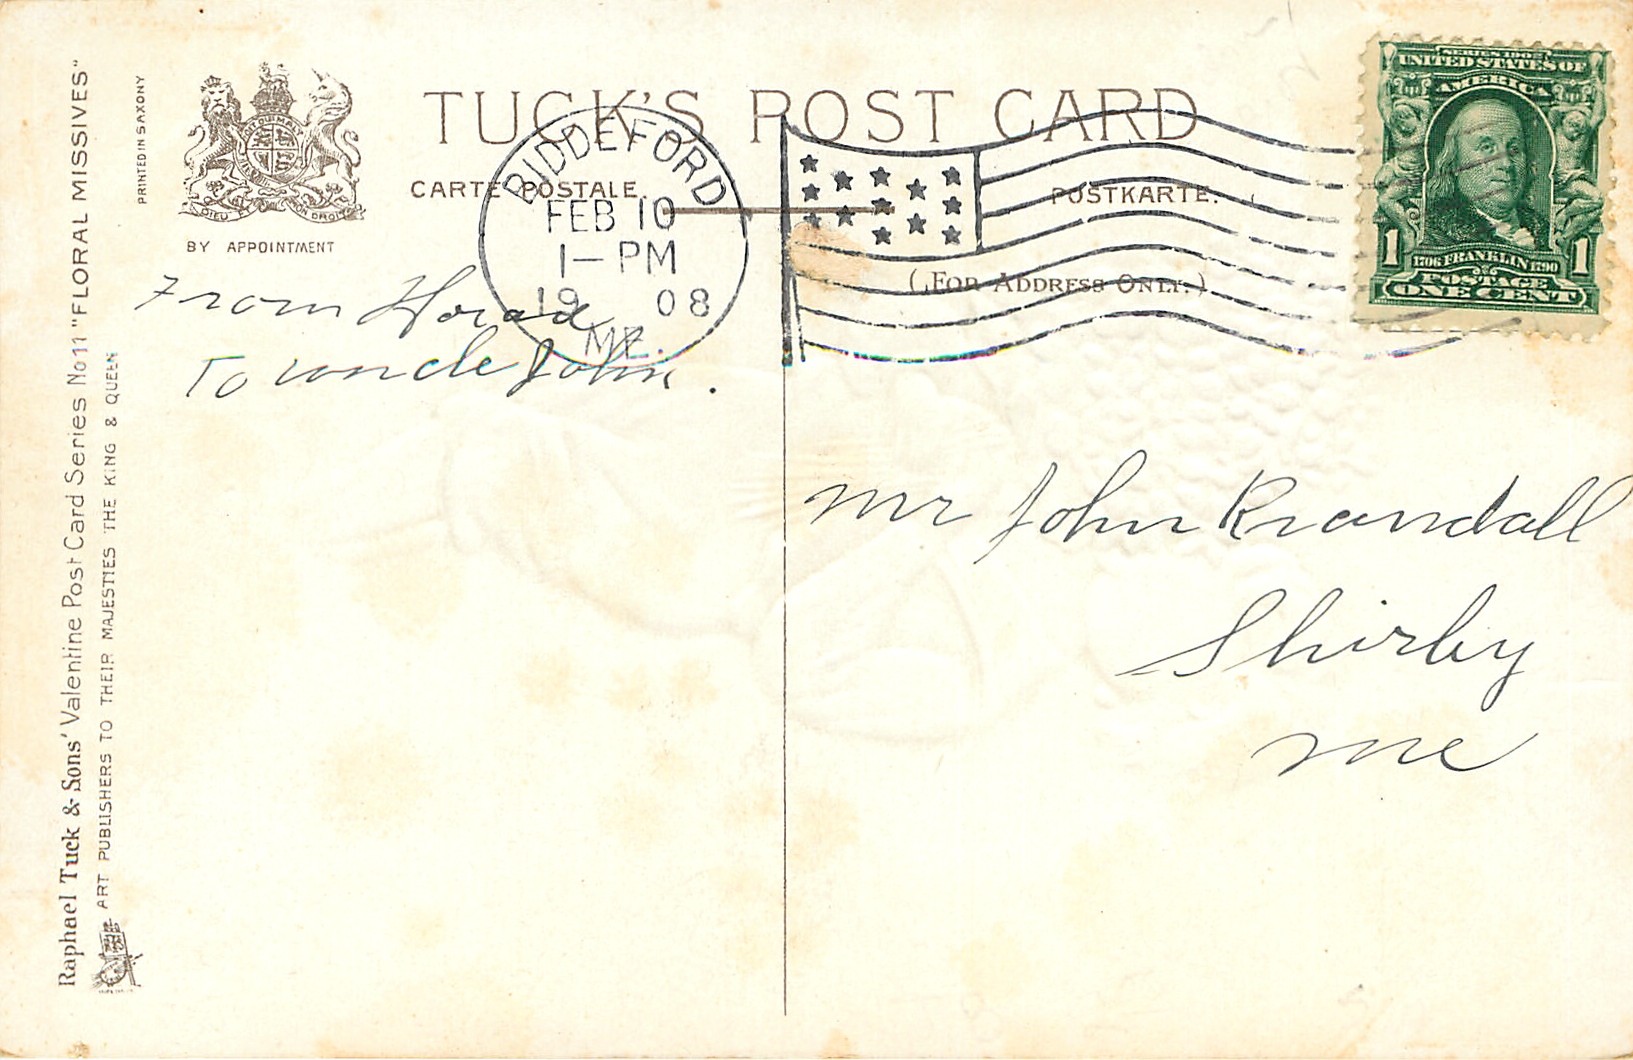 TUCK'S POST CARD
CARTE POSTALE.
POSTKARTE.
(FOR ADDRESS ONLY.)
BY APPOINTMENT
DIEU ET MON DROIT
PRINTED IN SAXONY
Raphael Tuck & Sons' Valentine Post Card Series No 11 "FLORAL MISSIVES"
ART PUBLISHERS TO THEIR MAJESTIES THE KING & QUEEN
BIDDEFORD
FEB 10
1-PM
19 08
ME.
SERIES 1902
UNITED STATES OF
AMERICA
1706 FRANKLIN 1790
POSTAGE
1 ONE CENT 1
From
To uncle John.
Mr John Krandall
Shirley
Me